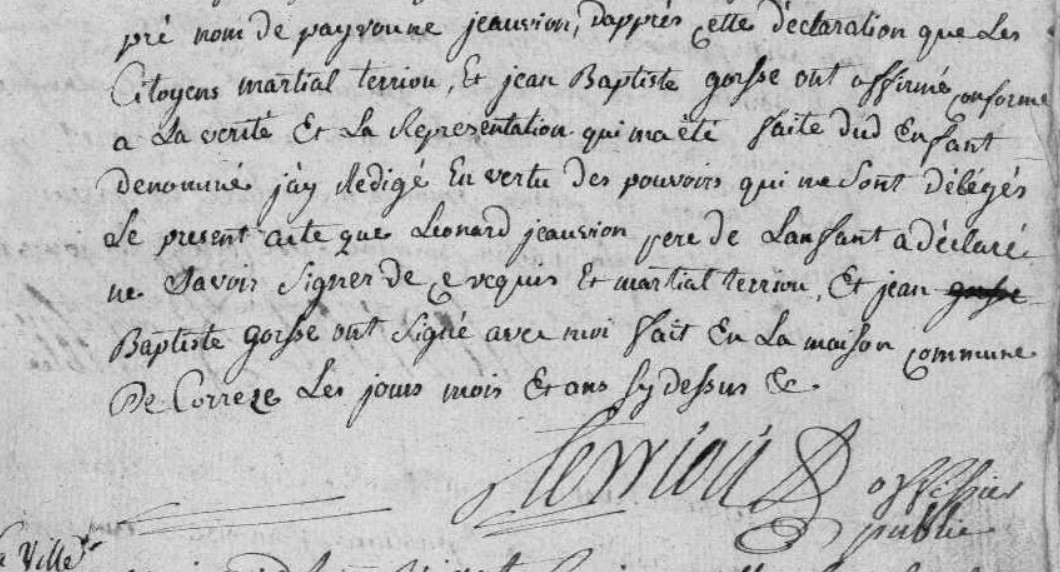 pré nom de payronne jeauvion, dapprés cette déclaration que Les
Citoyens martial terriou, Et jean Baptiste gorsse ont affirmé conforme
a La verité Et La Representation qui ma été faite dud Enfant
denommé jáy Redigé En vertu des pouvoirs qui me sont délégés
Le present acte que Leonard jeauvion pere de Lanfant a déclaré
ne Savoir Signer de ce requis Et martial terriou, Et jean gorsse
Baptiste gorsse ont Signé avec moi fait En La maison commune
De Correze Les jours mois Et ans sy dessus &c
terriou
officier
public
Ville